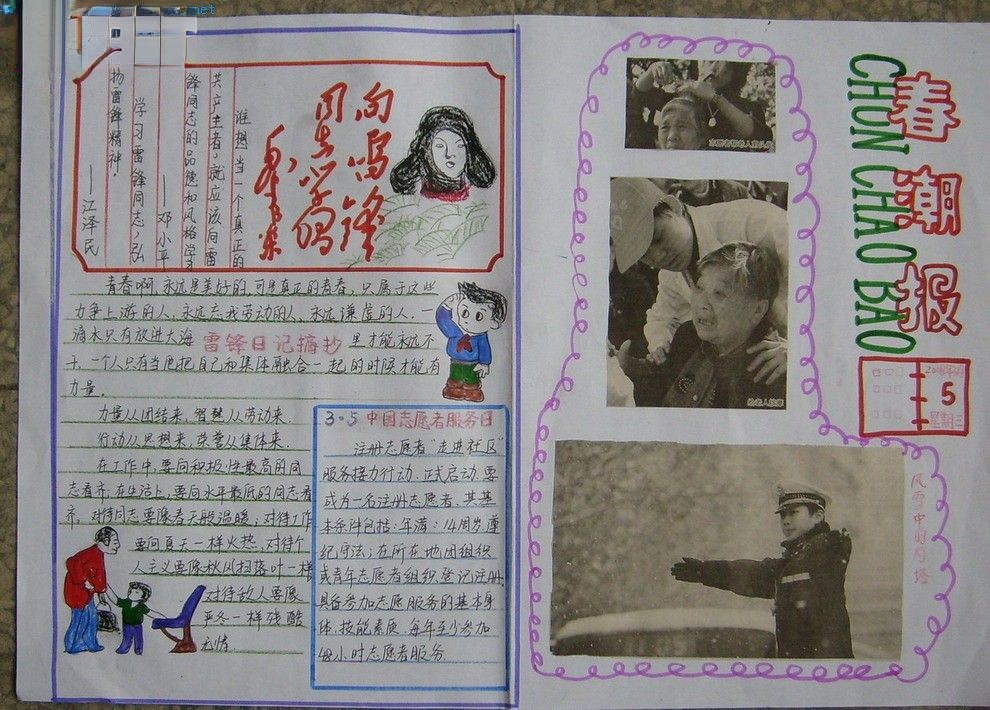 向雷锋
同志学习
毛泽东
谁想当一个真正的
共产主者,就应该向雷
锋同志的品德和风格学习
——邓小平
学习雷锋同志,弘
扬雷锋精神.
——江泽民
青春啊,永远是美好的,可是真正的青春,只属于这些
力争上游的人,永远忘我劳动的人,永远谦虚的人.一
滴水只有放进大海里才能永远不
干,一个人只有当他把自己和集体融合一起的时候才能有
力量.
雷锋日记摘抄
力量从团结来,智慧从劳动来.
行动从思想来,荣誉从集体来.
在工作中,要向积极性最高的同
志看齐,在生活上,要向水平最低的同志看
齐,对待同志要像春天般温暖,对待工作
要向夏天一样火热,对待个
人主义要像秋风扫落叶一样
对待敌人要像
严冬一样残酷
无情
3·5中国志愿者服务日
注册志愿者"走进社区"
服务接力行动.正式启动.要
成为一名注册志愿者,其基
本条件包括:年满:14周岁,遵
纪守法;在所在地团组织
或青年志愿者组织登记注册
具备参加志愿服务的基本身
体,技能素质.每年至少参加
48小时志愿者服务.
春潮报
CHUN CHAO BAO
5
星期三
给老人按摩
风雪中的